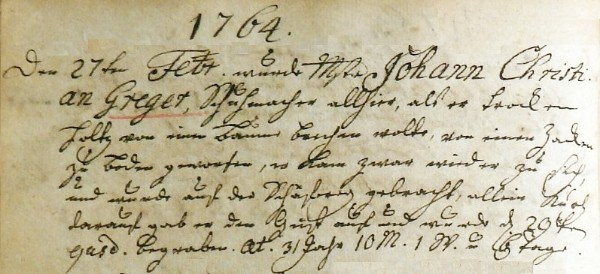 1764.
Den 27ten Febr. wurde Mstr Johann Christi-
an Greger, Schuhmacher allhier, als er trocken
Holtz von einem Baume brechen wolte, von einen Zacken
zu boden geworfen, er kam zwar wieder zu sich,
und wurde auf der gebracht, allein Kurtz
darauf gab er den Geist auf und wurde d 29ten
begraben. Æt. 31 Jahr 10 M. 1 W. u 6 tage.